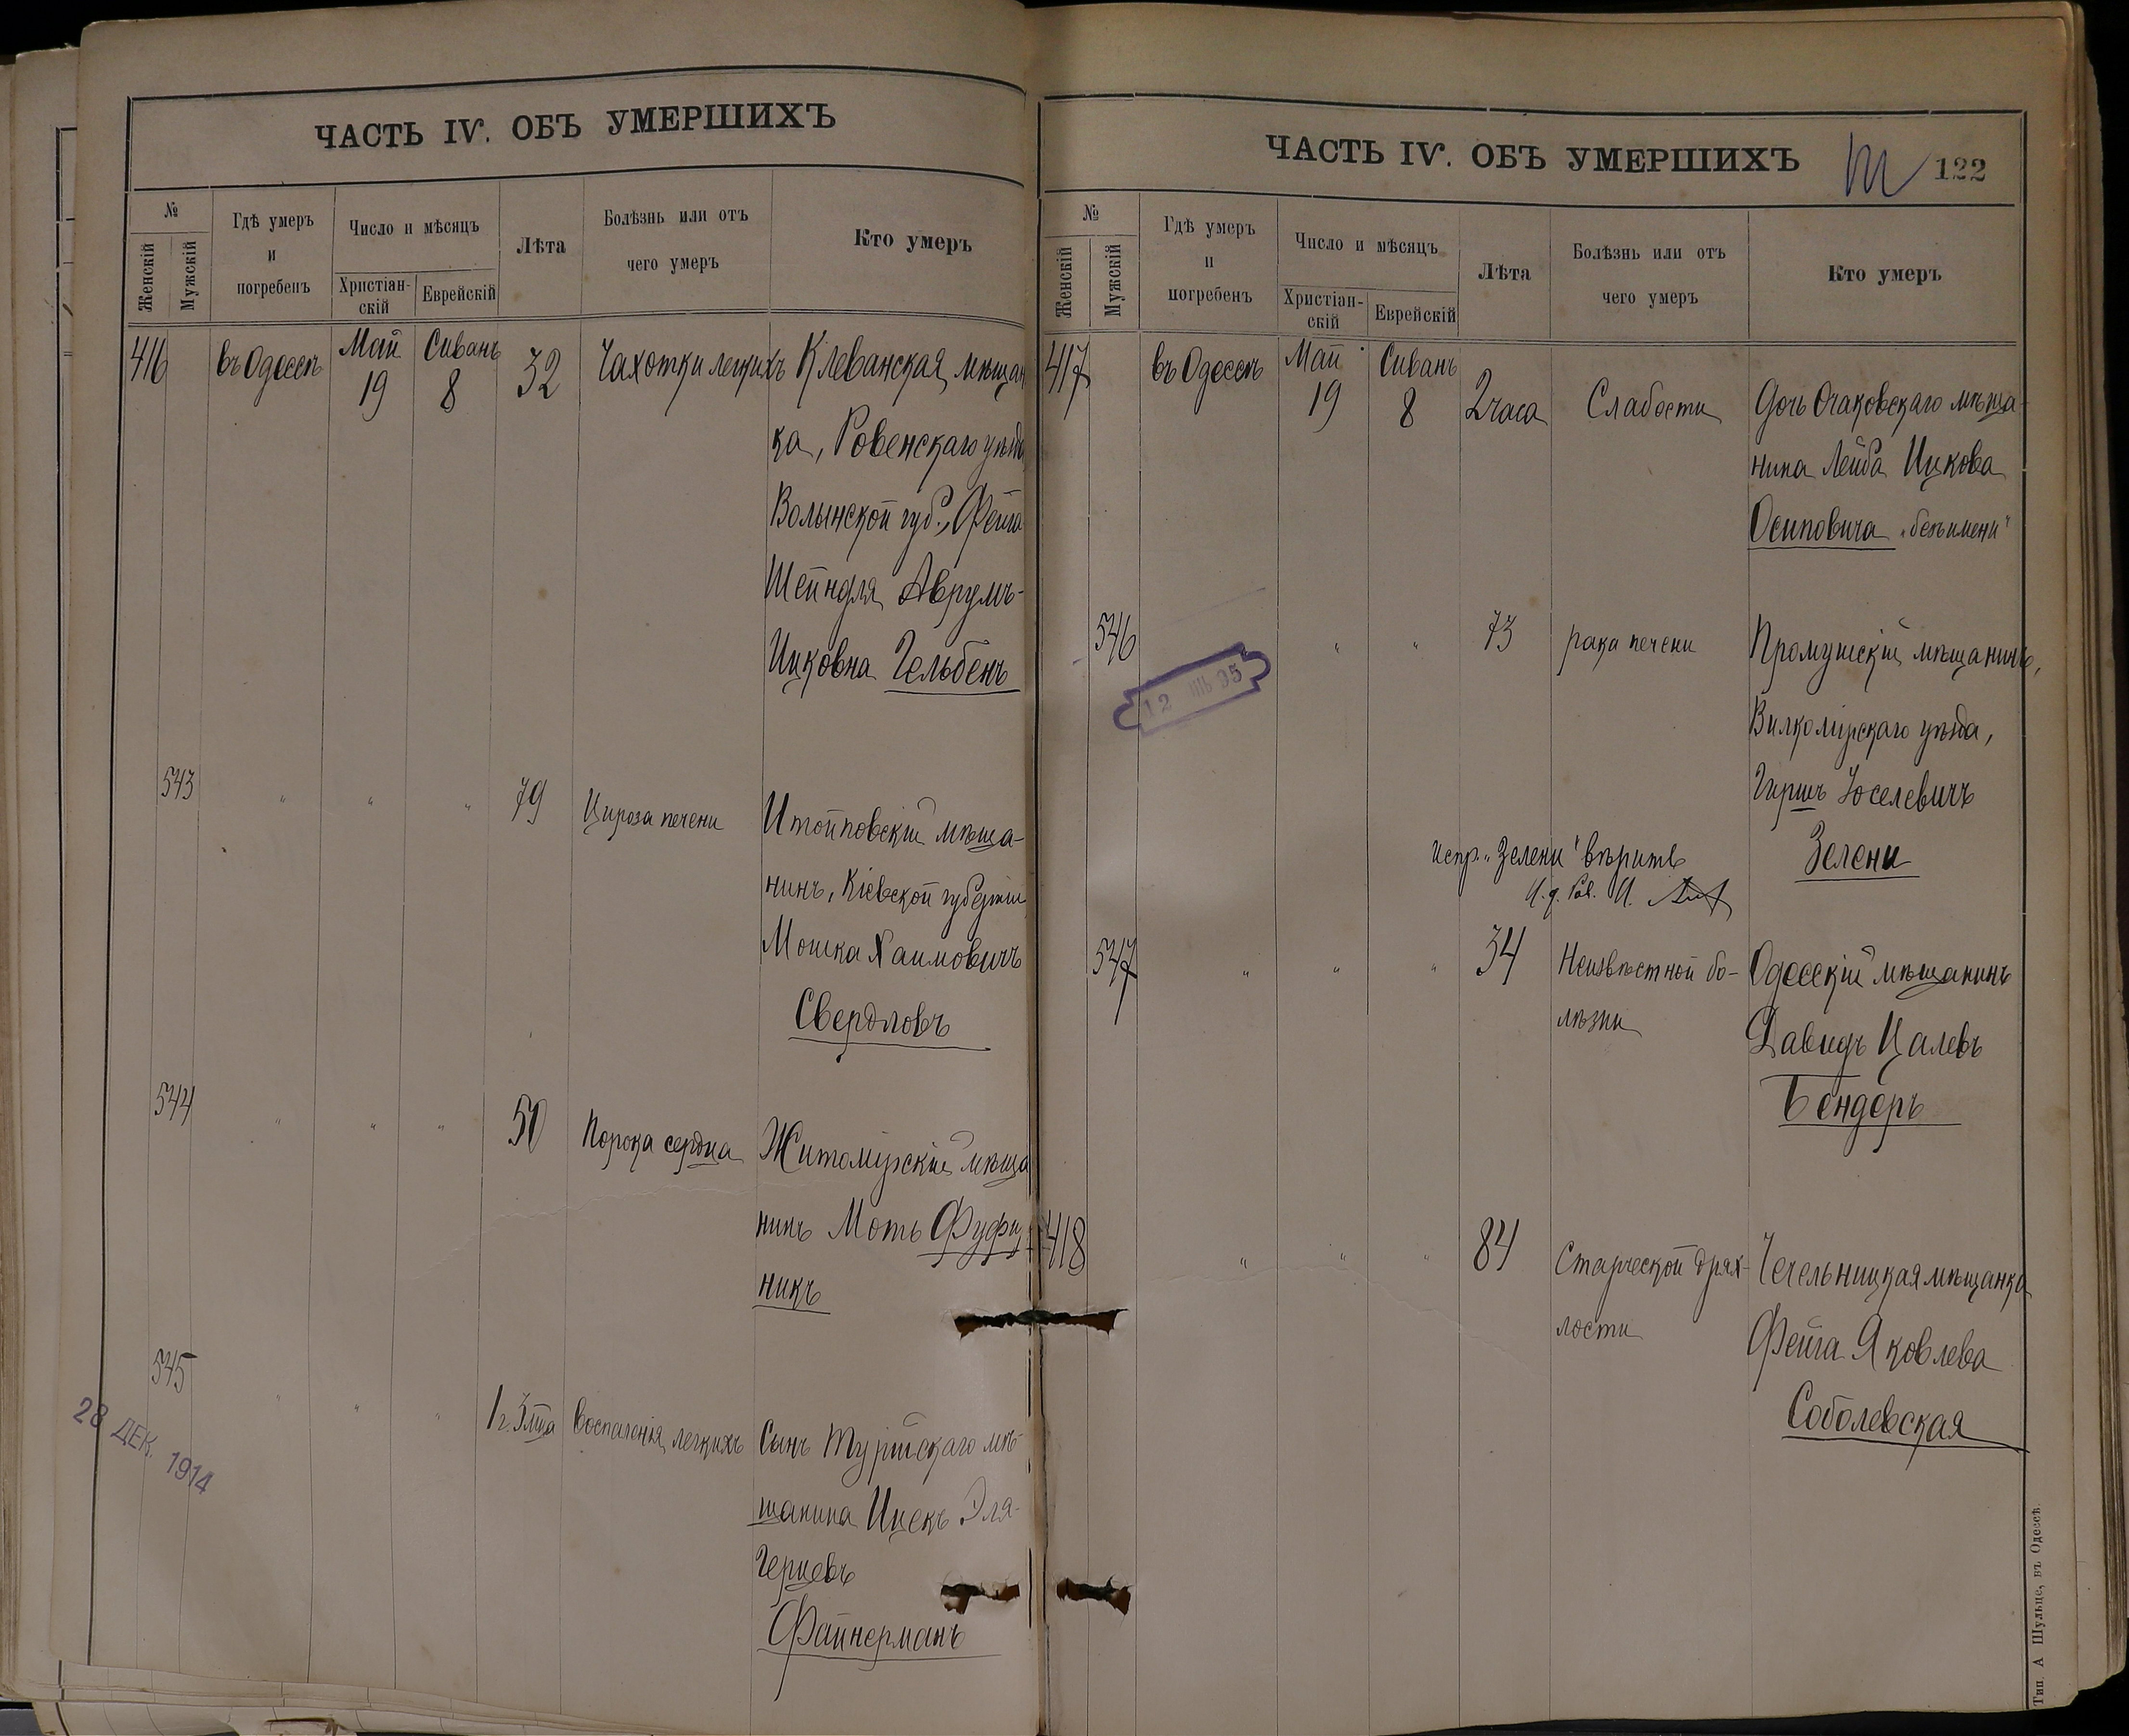 ЧАСТЬ IV. ОБЪ УМЕРШИХЪ
№
Женскій
Мужскій
Гдѣ умеръ
и
погребенъ
Число и мѣсяцъ
Христіан-
скій
Еврейскій
Лѣта
Болѣзнь или отъ
чего умеръ
Кто умеръ
416 въ Одессѣ Май 19 Сиванъ 8 32 Чахотки легкихъ Клеванская мѣщан
ка, Ровенскаго уѣзда
Волынской губ., Фейга
Шейндля Аврумъ-
Ицковна Гельбенъ
543 " " " 79 Цироза печени мѣща-
нинъ, Кіевской губерніи
Мошка Хаимовичъ
Свердловъ
544 " " " 50 Порока сердца Житомірскій мѣща
нинъ Моть
никъ
545 " " " 1 г. 3 мца Воспаленія легкихъ Сынъ Турійскаго мѣ-
щанина Ицекъ Эля-
Герцевъ
Файнерманъ
28 ДЕК. 1914
ЧАСТЬ IV. ОБЪ УМЕРШИХЪ
122
№
Женскій
Мужскій
Гдѣ умеръ
и
погребенъ
Число и мѣсяцъ
Христіан-
скій
Еврейскій
Лѣта
Болѣзнь или отъ
чего умеръ
Кто умеръ
417 въ Одессѣ Май 19 Сиванъ 8 2 часа Слабости Дочь Очаковскаго мѣща-
нина Лейба Ицкова
Осиповича „безъ имени"
546 " " " 73 рака печени мѣщанинъ,
Вилкомірскаго уѣзда,
Гиршъ Іоселевичъ
Зелени
12 95
испр. „Зелени" вѣрить
И. д. Рав. И.
547 " " " 34 Неизвѣстной бо- Одесскій мѣщанинъ
лѣзни Давидъ Цалевъ
Бендеръ
418 " " " 84 Старческой дрях- Чечельницкая мѣщанка
лости Фейга Яковлева
Соболевская
Тип. А Шульце, въ Одессѣ.